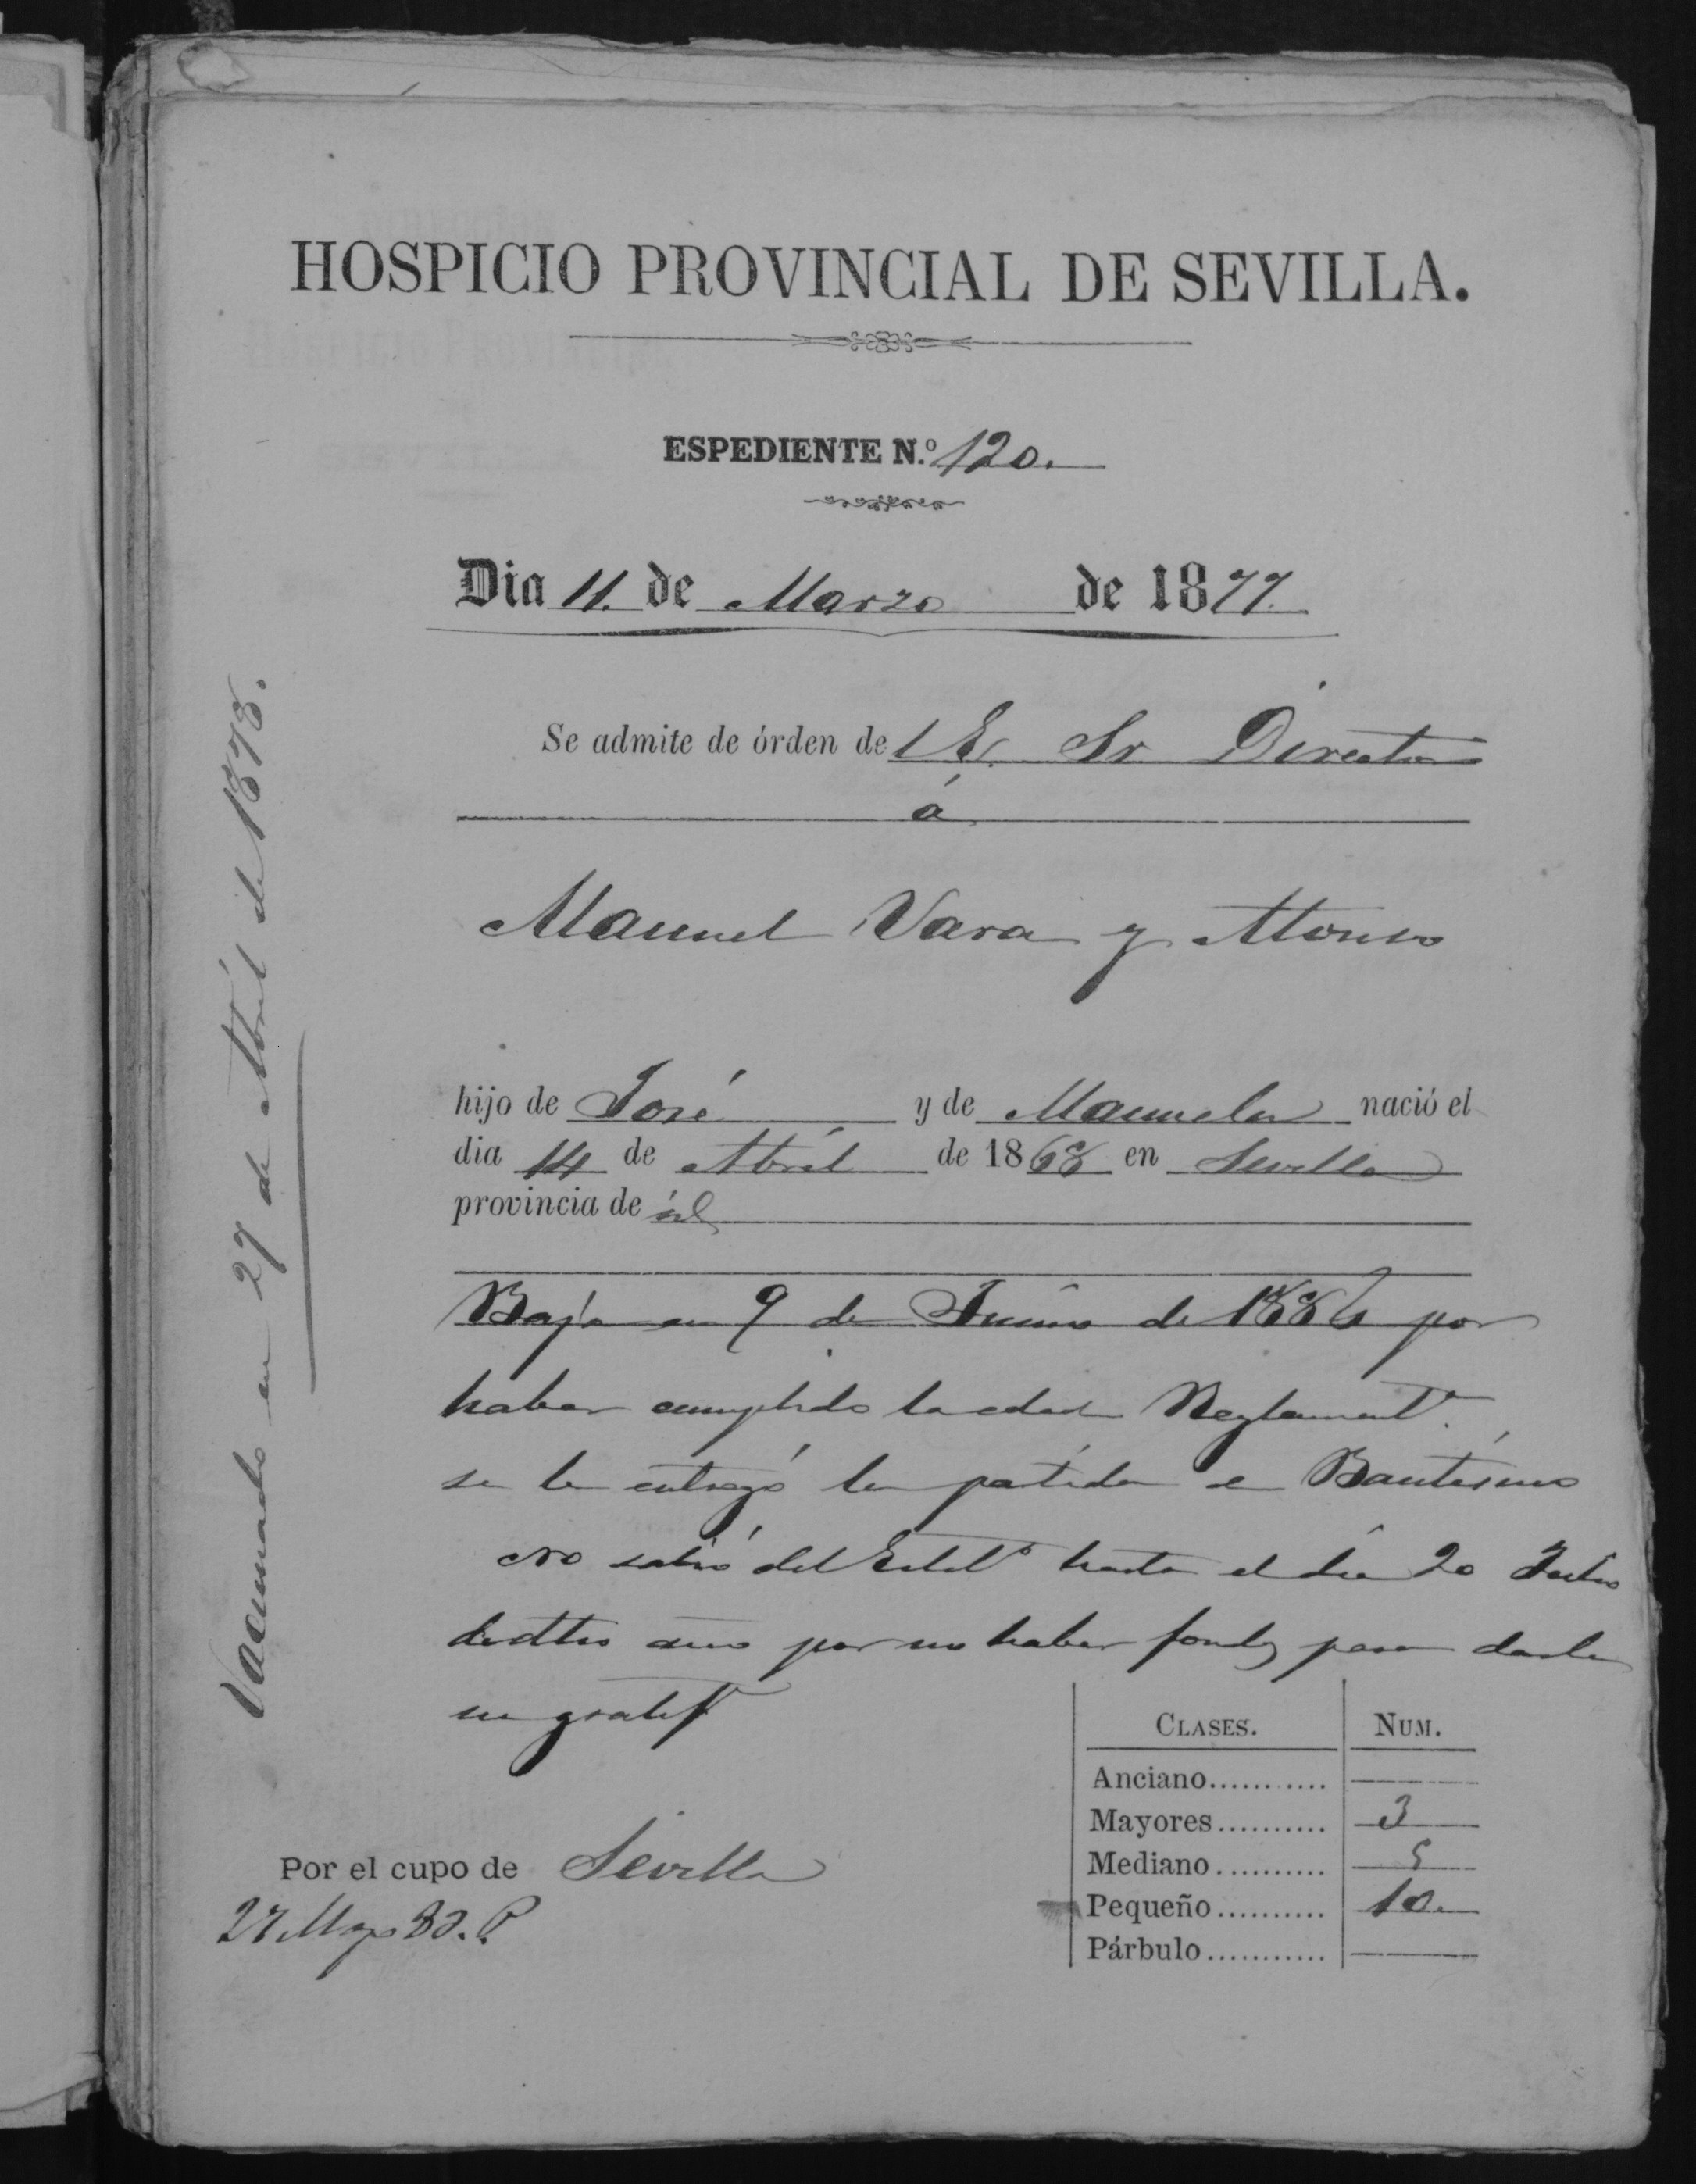 HOSPICIO PROVINCIAL DE SEVILLA.
ESPEDIENTE N.º 120.
Dia 11. de Marzo de 1877.
Se admite de órden del E. Sr. Director
á
Manuel Vara y Alonso
hijo de José y de Manuela nació el
dia 14 de Abril de 1868 en Sevilla
provincia de id
Baja en 9 de Junio de 1886 por
haber cumplido la edad Reglamentª.
se le entregó la partida de Bautismo
No salió del Establº hasta el dia 20 Julio
de dtho año por no haber fondos para darle
su gratifⁿ
Por el cupo de Sevilla
CLASES. NUM.
Anciano...........
Mayores.......... 3
Mediano.......... 5
Pequeño.......... 10.
Párbulo...........
Vacunado en 27 de Abril de 1878.